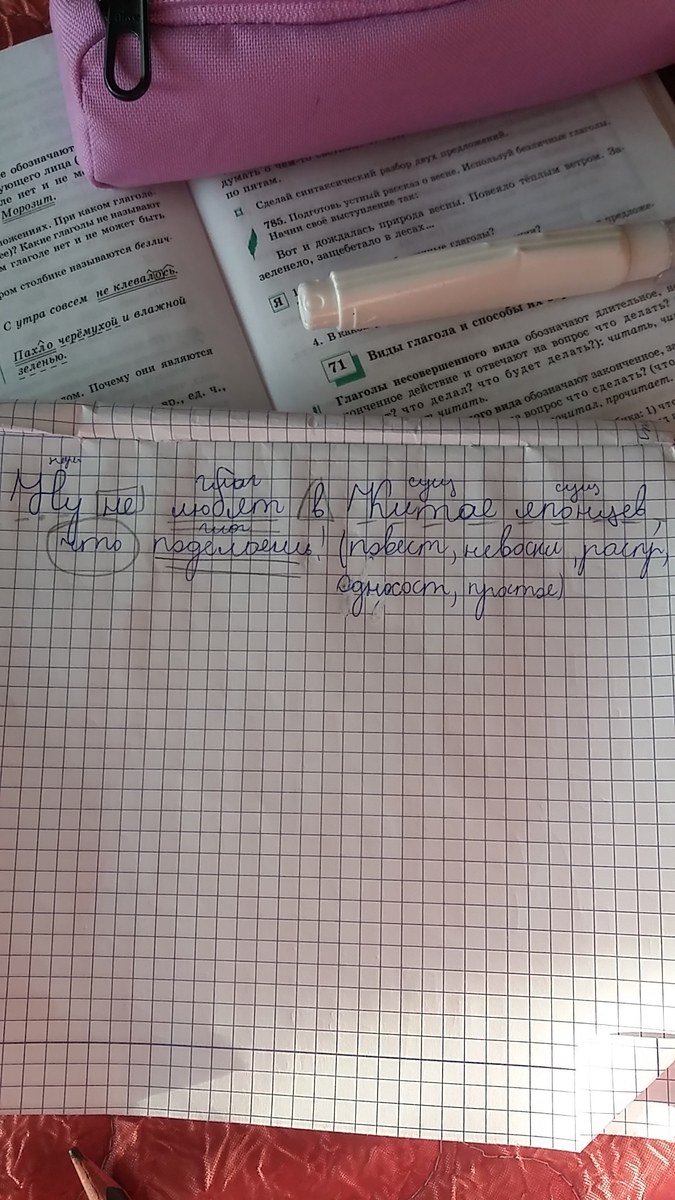 е обозначают
ующего лица (
ле нет и не мо
Морозит.
ложениях. При каком глаголе-
ее)? Какие глаголы не называют
м глаголе нет и не может быть
ром столбике называются безлич-
С утра совсем не клевалось.
Пахло черёмухой и влажной
зеленью.
лом. Почему они являются
вр., ед. ч.,
думать о чём-то
по пятам.
Сделай синтаксический разбор двух предложений.
785. Подготовь устный рассказ о весне. Используй безличные глаголы.
Начни своё выступление так:
Вот и дождалась природа весны. Повеяло тёплым ветром. За-
зеленело, защебетало в лесах...
Я
глаголы?
4. В как
71 Виды глагола и способы их
Глаголы несовершенного вида обозначают длительное, не
конченное действие и отвечают на вопрос что делать?
? что делал? что будет делать?): читать, чи
читать.
ого вида обозначают законченное, за
вопрос что сделать? (что
читал, прочитает.
1) что
глаг сущ сущ
Ну не любят в Китае японцев,
глаг
что поделаешь! (повест, невоскл, распр,
односост, простое)